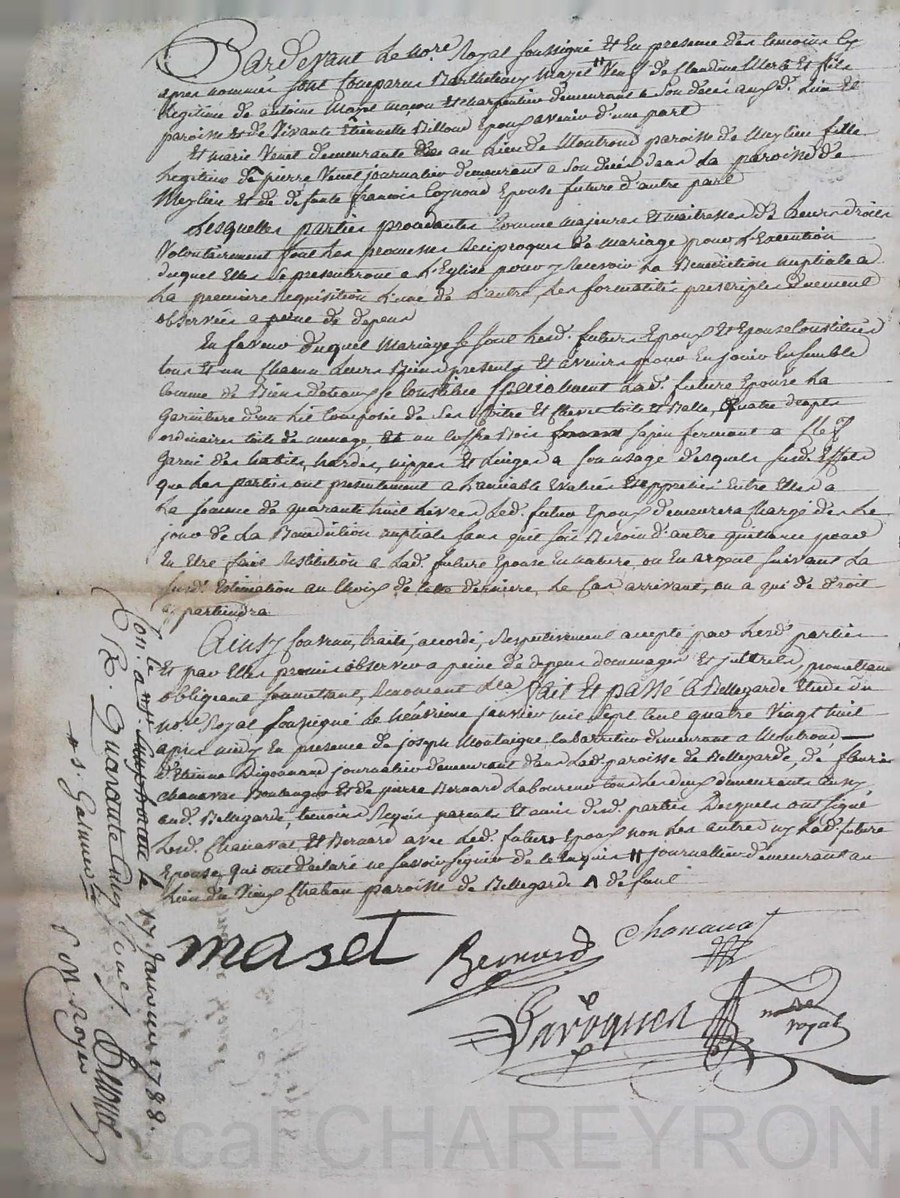 Pardevant le no.re Royal soussigné et En presence des temoins Cy
apres nommés sont Comparus Barthelemy Mazet # Veuf de Claudine Merle Et fils
Legitime de antoine Mazet maçon et charpentier demeurant a son decés aud. Lieu et
paroisse et de Vivante Etiennette Billoud Epoux avenir d'une part
Et marie Venet demeurante au Lieu de Montrond paroisse de Meylieu fille
Legitime de pierre Venet journalier demeurant a son decés dans La paroisse de
Meylieu Et de defunte françoise Epouse future d'autre part
Lesquelles parties procedantes Comme majeures Et maitresses de Leurs droits
Volontairement font Les promesses Reciproques de mariage pour L'Execution
duquel Elles se presenteront a L'Eglise pour y Recevoir La Benediction nuptiale a
La premiere Requisition L'une de L'autre Les formalités prescriptes duement
observées a peine de depens
En faveur duquel Mariage se sont Lesd. futurs Epoux Et Epouse Constitués
tous Et un Chacun Leurs Biens presents Et avenirs pour En jouir Ensemble
Comme de Biens dotaux se Constitue specialement Lad. future Epouse La
garniture d'un Lit Composée de Ses Coitre Et Chevet toile Et Balle, quatre draps
ordinaires toile de menage et un Coffre Bois sapin fermant a Clef
garni des habits, hardes, nippes Et Linges a son usage desquels susd. Effets
que Les parties ont presentement a L'amiable Evalués Et appreciés Entre Elles a
La somme de quarante huit Livres Led. futur Epoux demeurera Chargé dès Le
jour de La Benediction nuptiale sans qu'il soit Besoin d'autre quittance pour
En Etre fait Restitution a Lad. future Epouse En nature, ou En argent suivant La
susd. Estimation au Choix de Cette derniere, Le Cas arrivant, ou a qui de droit
apartiendra
Ainsy Convenu, traité, accordé, Respectivement accepté par Lesd. parties
Et par Elles promis observer a peine de depens dommages Et jnterets, promettant
obligeant soumettant, Renonçant &c fait Et passé a Bellegarde Etude du
no.re Royal soussigné le neuvieme janvier mil sept Cent quatre Vingt huit
apres midy En presence de joseph Montaigne Cabaretier demeurant a Montrond,
d'Etienne journalier demeurant dans Lad. paroisse de Bellegarde, de fleuris
Chanavat Boulanger Et de pierre Bernard Laboureur tous Les deux demeurants Aussy
aud. Bellegarde, temoins Requis parents Et amis desd. parties Desquels ont signé
Lesd. Chanavat Et Bernard avec Led. futur Epoux non Les autres ny Lad. future
Epouse qui ont declaré ne savoir signer de Ce Enquis # journallier demeurant au
Lieu du Vieux Chabou paroisse de Bellegarde ^ de fait
maset
Bernard
Chanavat
no.re
royal
Con. a le 17 Janvier 1788.
R. Quarante
a S. Galmier le